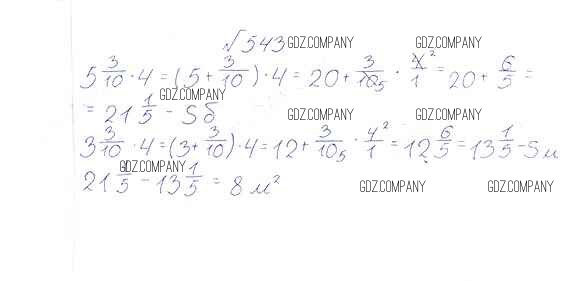 √543 GDZ.COMPANY GDZ.COMPANY
5 3/10 · 4 = (5 + 3/10) · 4 = 20 + 3/10 5 · 4/1 2 = 20 + 6/5 =
GDZ.COMPANY
= 21 1/5 - Sб GDZ.COMPANY GDZ.COMPANY
3 3/10 · 4 = (3 + 3/10) · 4 = 12 + 3/10 5 · 4/1 2 = 12 6/5 = 13 1/5 - Sм
GDZ.COMPANY
21 1/5 - 13 1/5 = 8 м² GDZ.COMPANY GDZ.COMPANY